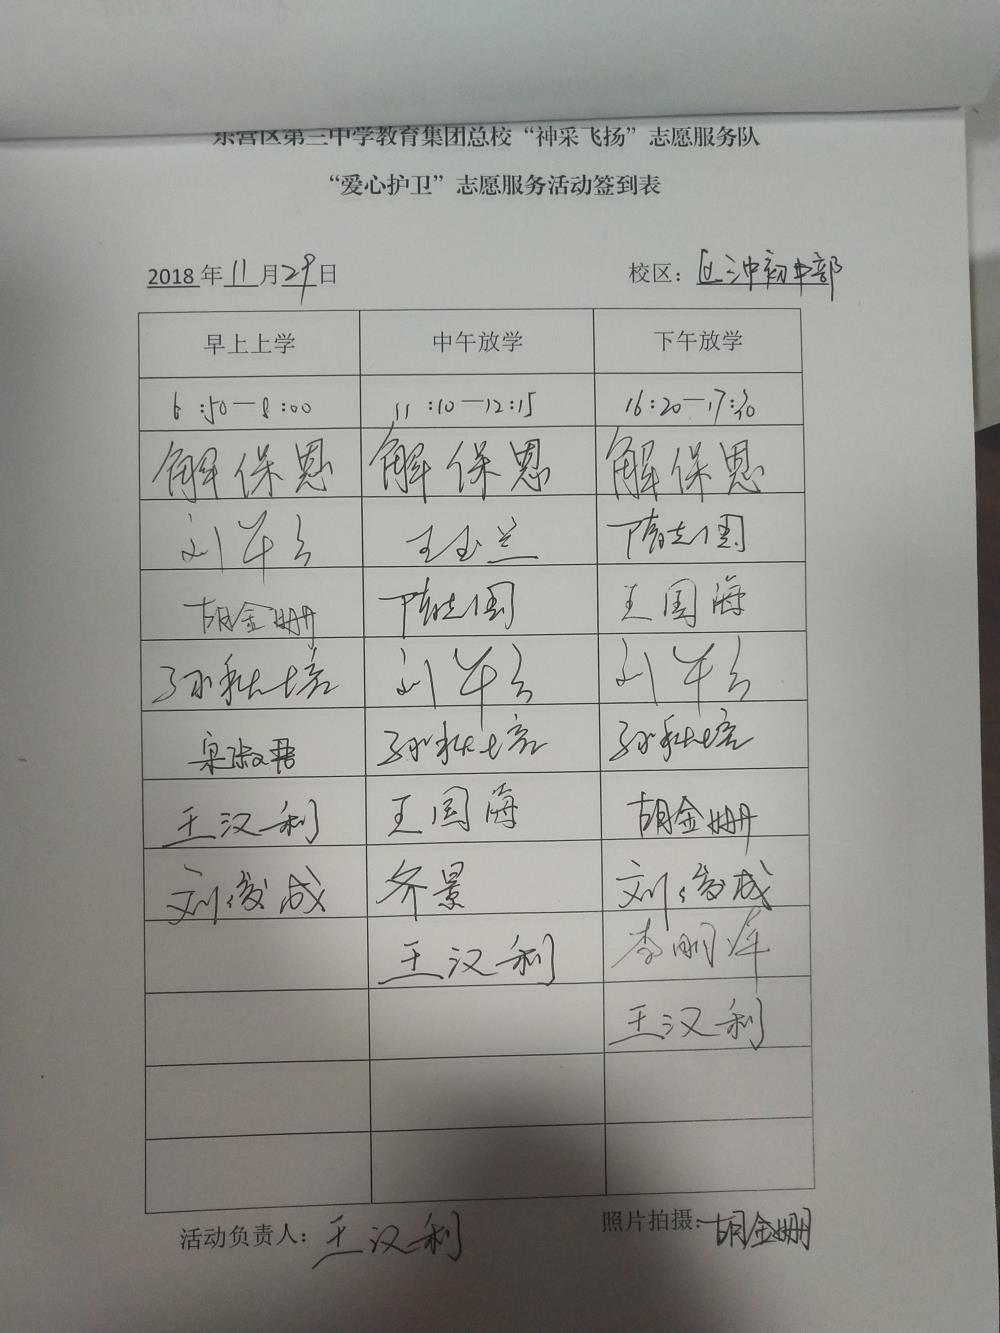 东营区第三中学教育集团总校“神采飞扬”志愿服务队
“爱心护卫”志愿服务活动签到表
2018年11月29日 校区：区三中初中部
早上上学 中午放学 下午放学
6:50—8:00 11:10—12:15 16:20—17:30
解保恩 解保恩 解保恩
刘 王玉兰 隋志国
胡金姗 隋志国 王国海
孙秋培 刘 刘
孙秋培 孙秋培
王汉利 王国海 胡金姗
刘俊成 齐景 刘俊成
王汉利 李刚
王汉利
活动负责人：王汉利 照片拍摄：胡金姗